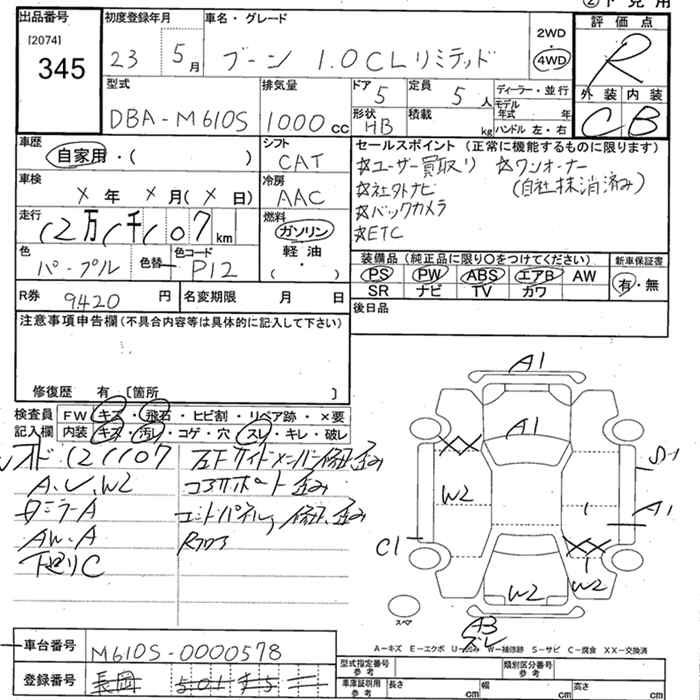 出品番号
[2074]
345
初度登録年月
23 5月
車名・グレード
ブーン 1.0CLリミテッド
2WD
・
4WD
評価点
R
外装 内装
C B
型式
DBA-M610S
排気量
1000 cc
ドア
5
定員
5 人
形状
HB
積載
kg
ディーラー・並行
モデル年式 年
ハンドル 左・右
車歴
自家用・( )
シフト
CAT
車検
X 年 X 月 (X 日)
冷房
AAC
走行
12万1千107 km
燃料
ガソリン
軽油
( ・ )
色
パープル
色替
色コード
P12
R券
9420 円
名変期限 月 日
セールスポイント (正常に機能するものに限ります)
☆ユーザー買取り ☆ワンオーナー
☆社外ナビ (自社抹消済み)
☆バックカメラ
☆ETC
装備品 (純正品に限り○をつけてください)
PS PW ABS エアB AW
SR ナビ TV カワ
新車保証書
有・無
後日品
注意事項申告欄(不具合内容等は具体的に記入して下さい)
修復歴 有 〔箇所 〕
検査員記入欄
FW キズ・飛石・ヒビ割・リペア跡・×要
内装 キズ・汚レ・コゲ・穴・スレ・キレ・破レ
121107
A、U、W2
AW、A
下廻りC
左F サイドメンバー修正、歪み
コアサポート 歪み
エンドパネル、修正、歪み
A1
A1
XX
W2
S1
A1
C1
XX
W2
スペア
A-キズ E-エクボ U-凹み W-補修跡 S-サビ C-腐食 XX-交換済
車台番号
M610S-0000578
登録番号
長岡 501
型式指定番号
参考
類別区分番号
参考
車庫証明用
参考
長さ cm
幅 cm
高さ cm